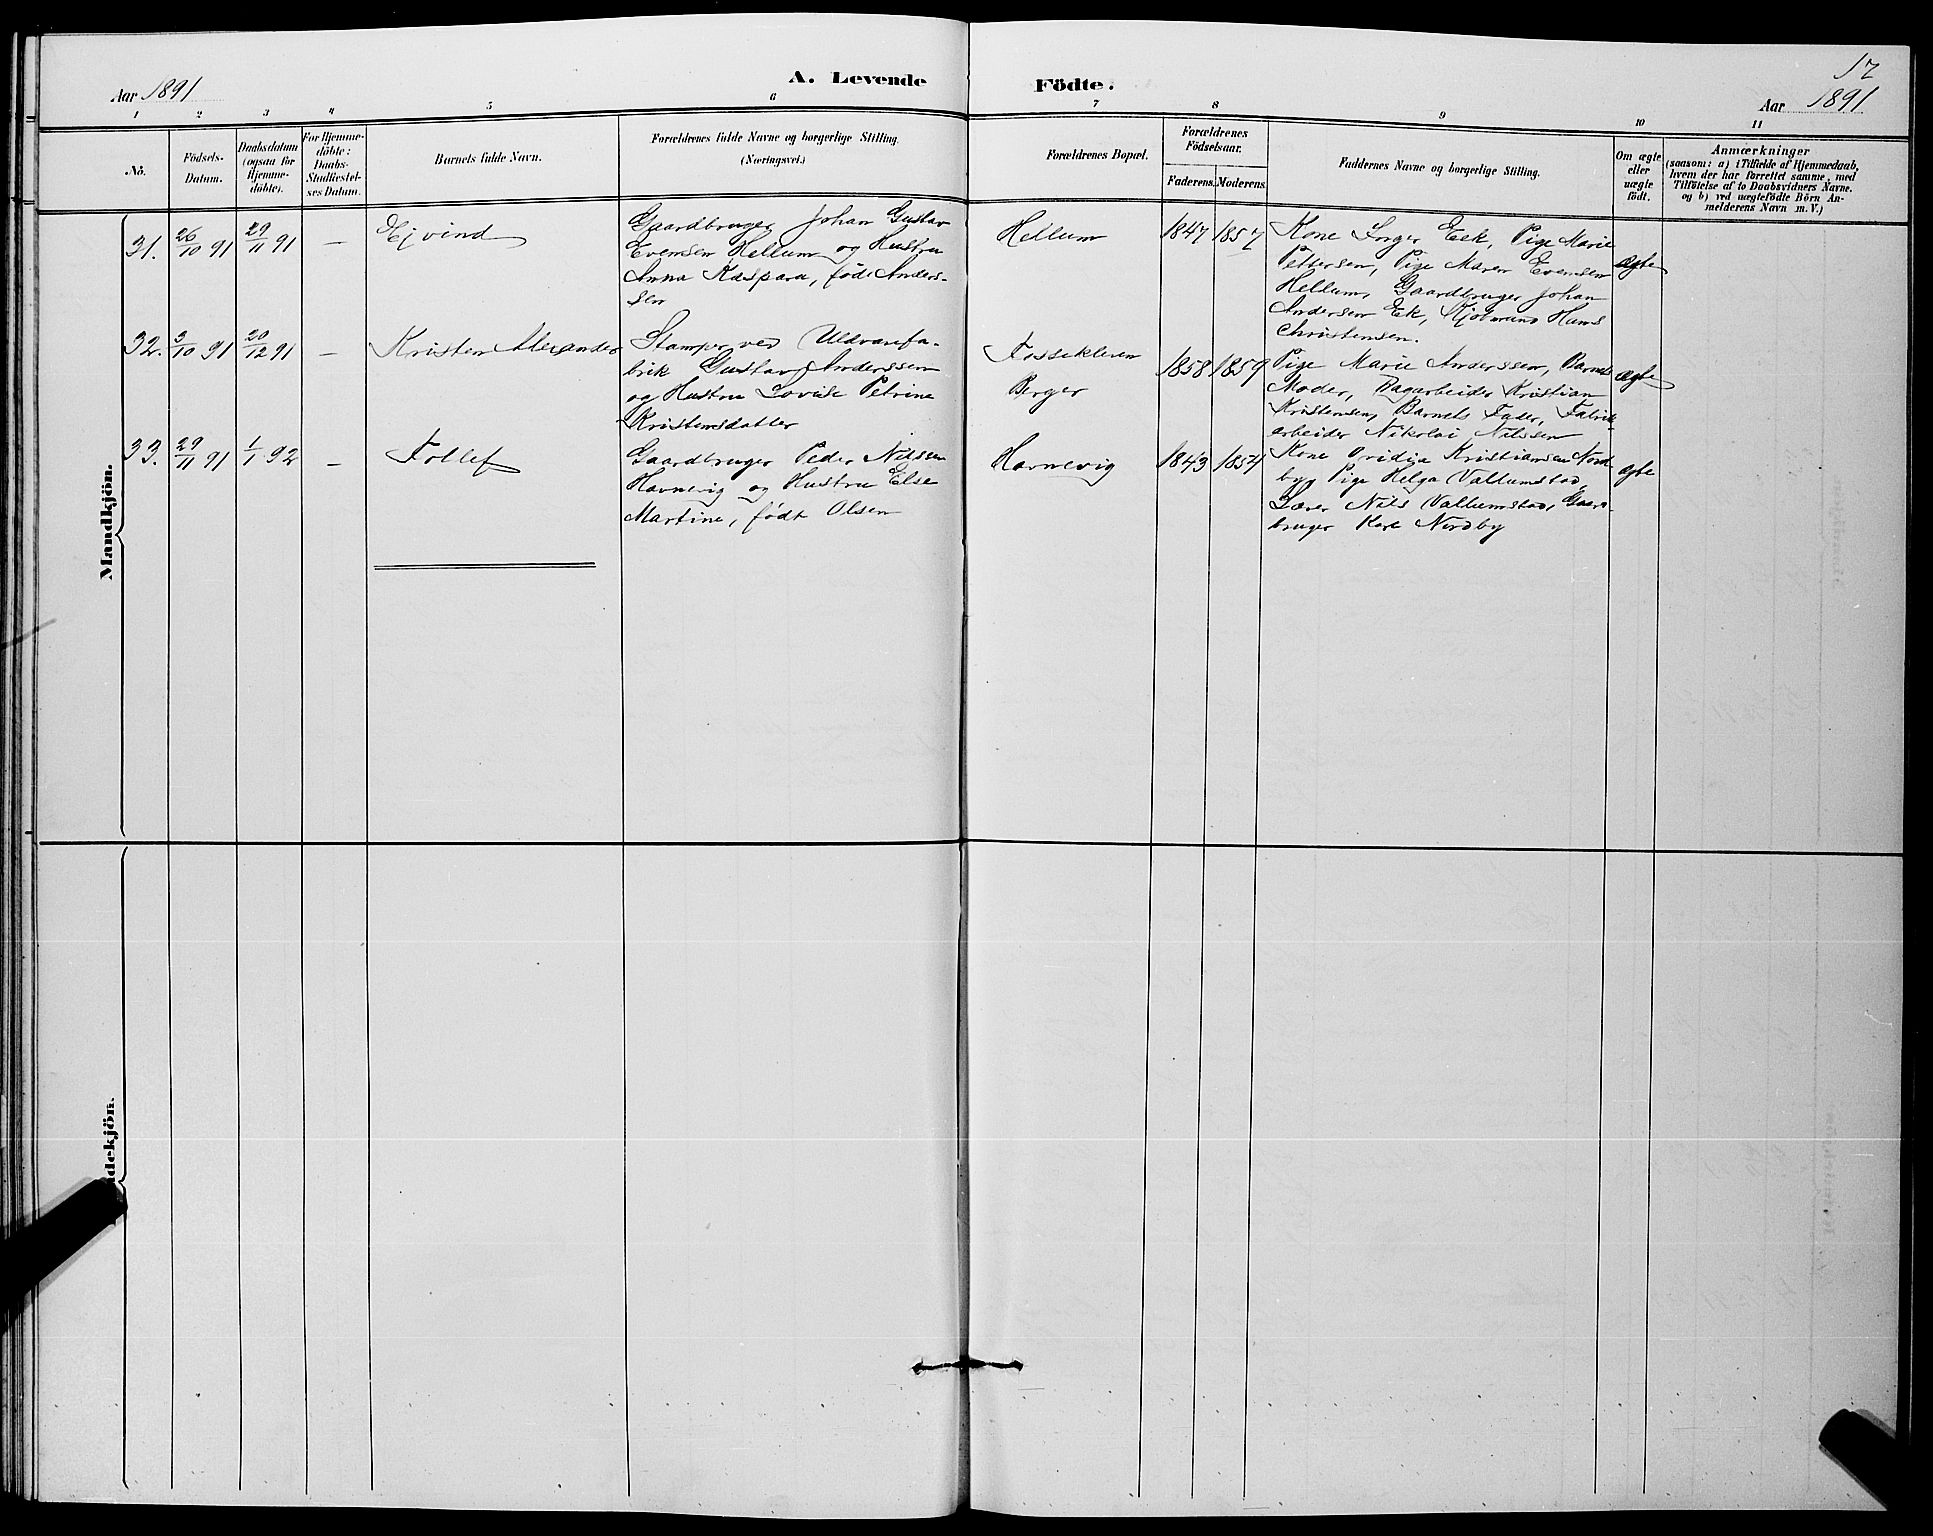 Aar 1891
A. Levende
Födte.
17
Aar 1891
1 2 3 4 5 6 7 8 9 10 11
No.
Födsels-
Datum.
Daabsdatum
(ogsaa for
Hjemme-
döbte).
For Hjemme-
döbte:
Daabs-
Stadfæstel-
ses Datum.
Barnets fulde Navn.
Forældrenes fulde Navne og borgerlige Stilling.
(Næringsvei.)
Forældrenes Bopæl.
Forældrenes
Födselsaar.
Faderens. Moderens.
Faddernes Navne og borgerlige Stilling.
Om ægte
eller
uægte
födt.
Anmærkninger
(saasom: a) i Tilfælde af Hjemmedaab,
hvem der har forrettet samme, med
Tilföielse af to Daabsvidners Navne.
og b) ved uægtefödte Börn An-
melderens Navn m. V.)
Mandkjön.
31. 26/10 91 29/11 91 — Ejvind
Gaardbruger Johan Gustav
Evensen Hellum og Hustru
Anna Kaspara, født Anders-
sen
Hellum 1847 1857
Kone Inger Eek, Pige Marie
Pettersen, Pige Maren Evensen
Hellum, Gaardbruger Johan
Andersen Ek, Hans
Christensen.
ægte
32. 3/10 91 20/12 91 — Kristen Alexander
Stamper ved Uldvarefa-
brik Gustav Anderssen
og Hustru Lovise Petrine
Kristensdatter
Fossekleven
Berger
1858 1859
Pige Marie Anderssen, Barnets
Moder, Dagarbeider Kristian
Kristensen, Barnets Fader, Fabrik-
arbeider Nikolai Nilssen
ægte
33. 29/11 91 1/1 92 — Tollef
Gaardbruger Peder Nilssen
Havnevig og Hustru Else
Martine, født Olsen
Havnevig 1843 1854
Kone Ovidia Kristiansen Nord-
by, Pige Helga Vallumstad,
Lærer Nils Vallumstad, Gaard-
bruger Karl Nordby
ægte
dekjön.